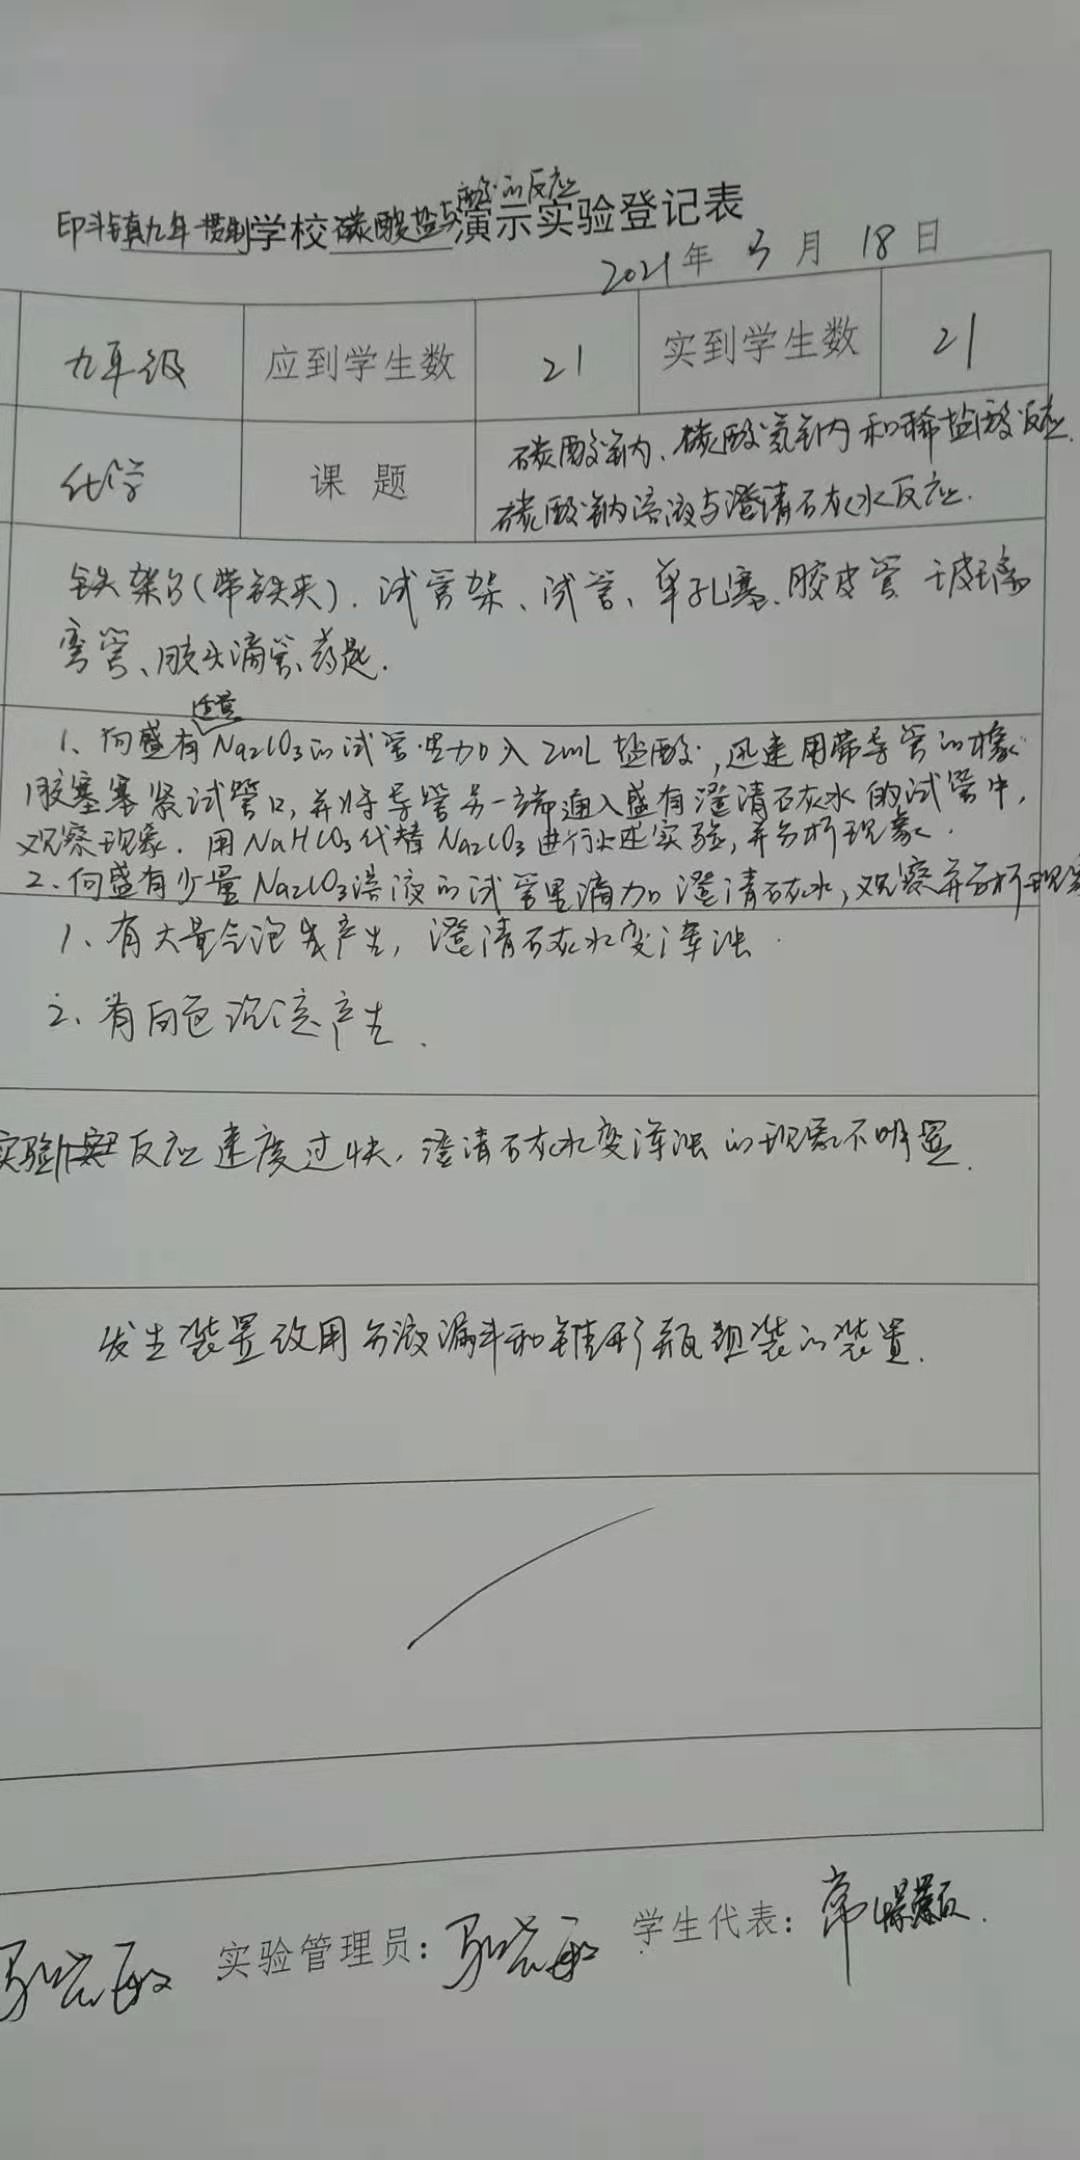 酸的反应
印斗镇九年一贯制学校碳酸盐与演示实验登记表
2021年 3月 18日
九年级 应到学生数 21 实到学生数 21
化学 课 题 碳酸钠、碳酸氢钠和稀盐酸反应.
碳酸钠溶液与澄清石灰水反应.
铁架台(带铁夹).试管架、试管、单孔塞、胶皮管 玻璃
弯管、胶头滴管、药匙.
适量
1、向盛有Na2CO3的试管里加入2mL盐酸,迅速用带导管的橡
胶塞塞紧试管口,并将导管另一端通入盛有澄清石灰水的试管中,
观察现象.用NaHCO3代替Na2CO3进行上述实验,并分析现象.
2.向盛有少量Na2CO3溶液的试管里滴加澄清石灰水,观察并分析现象
1、有大量气泡产生,澄清石灰水变浑浊.
2、有白色沉淀产生.
实验 反应速度过快,澄清石灰水变浑浊的现象不明显.
发生装置改用分液漏斗和锥形瓶组装的装置.
实验管理员: 学生代表: 常